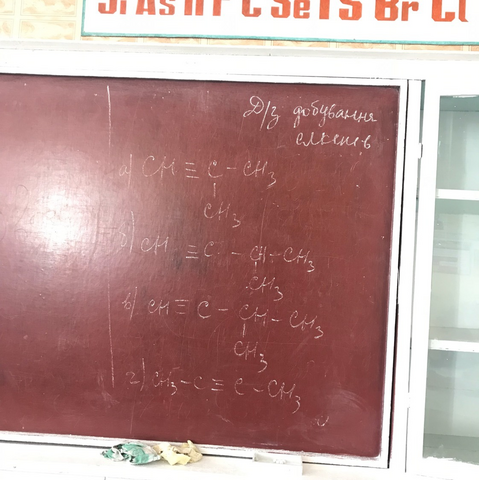 Si As N P C Se I S Br Cl
Д/з добування
алкенів
а) CH ≡ C - CH3
CH3
б) CH ≡ C - CH - CH3
CH3
в) CH ≡ C - CH - CH3
CH3
г) CH3 - C ≡ C - CH3